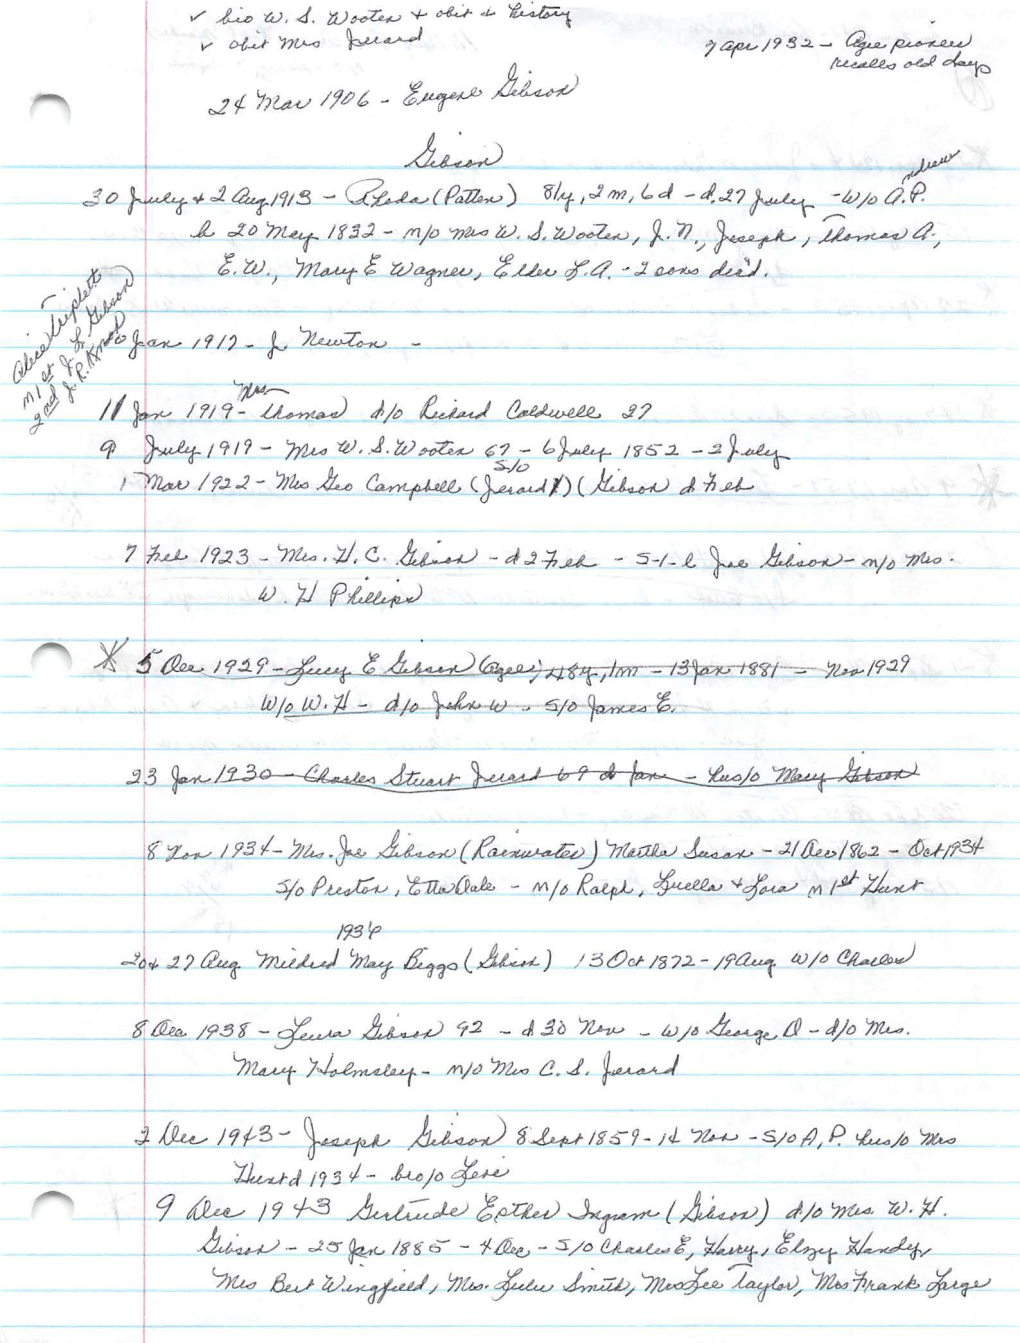 ✓ bio W. S. Wooten + obit + history
✓ obit Mrs Jerard
7 Apr 1932 - Agee pioneer
recalls old days
24 Mar 1906 - Eugene Gibson
Gibson
30 July + 2 Aug 1913 - Rhoda (Patten) 81y, 2m, 6d - d. 27 July - W/o A.P. Andrew
b 20 May 1832 - m/o Mrs W. S. Wooten, J. N., Joseph, Thomas A.,
E. W., Mary E Wagner, Elder L. A. - 2 sons died.
Alice Triplett
m 1st J. L Gibson
2nd J. R. Knapp
Jan 1917 - J. Newton -
11 Jan 1919 - Mrs Thomas d/o Richard Caldwell 27
9 July 1919 - Mrs W. S. Wooten 67 - 6 July 1852 - 2 July
1 Mar 1922 - Mrs Geo Campbell (Jerard) S/o (Gibson d Feb
7 Feb 1923 - Mrs. H. C. Gibson - d 2 Feb - S-I-L Joe Gibson - m/o Mrs.
W. H Phillips
* 5 Dec 1929 - Lucy E Gibson (Ogee) 48y, 1m - 13 Jan 1881 - Nov 1929
W/o W. H - d/o John W - S/o James E.
23 Jan 1930 - Charles Stuart Jerard 69 d Jan - hus/o Mary Gibson
8 Nov 1934 - Mrs. Joe Gibson (Rainwater) Martha Susan - 21 Dec 1862 - Oct 1934
S/o Preston, Etta Dale - m/o Ralph, Luella + Lora m 1st Hunt
1936
20 + 27 Aug Mildred May Beggs (Gibson) 13 Oct 1872 - 19 Aug W/o Charles
8 Dec 1938 - Leura Gibson 92 - d 30 Nov - W/o George D - d/o Mrs.
Mary Holmsley - m/o Mrs C. S. Jerard
2 Dec 1943 - Joseph Gibson 8 Sept 1859 - 14 Nov - S/o A. P. hus/o Mrs
Hunt d 1934 - bro/o Levi
9 Dec 1943 Gertrude Esther Ingram (Gibson) d/o Mrs. W. H.
Gibson - 25 Jan 1885 - 4 Dec - S/o Charles E, Harry, Elzy Handy,
Mrs Bert Wingfield, Mrs. Lulu Smith, Mrs Lee Taylor, Mrs Frank Large